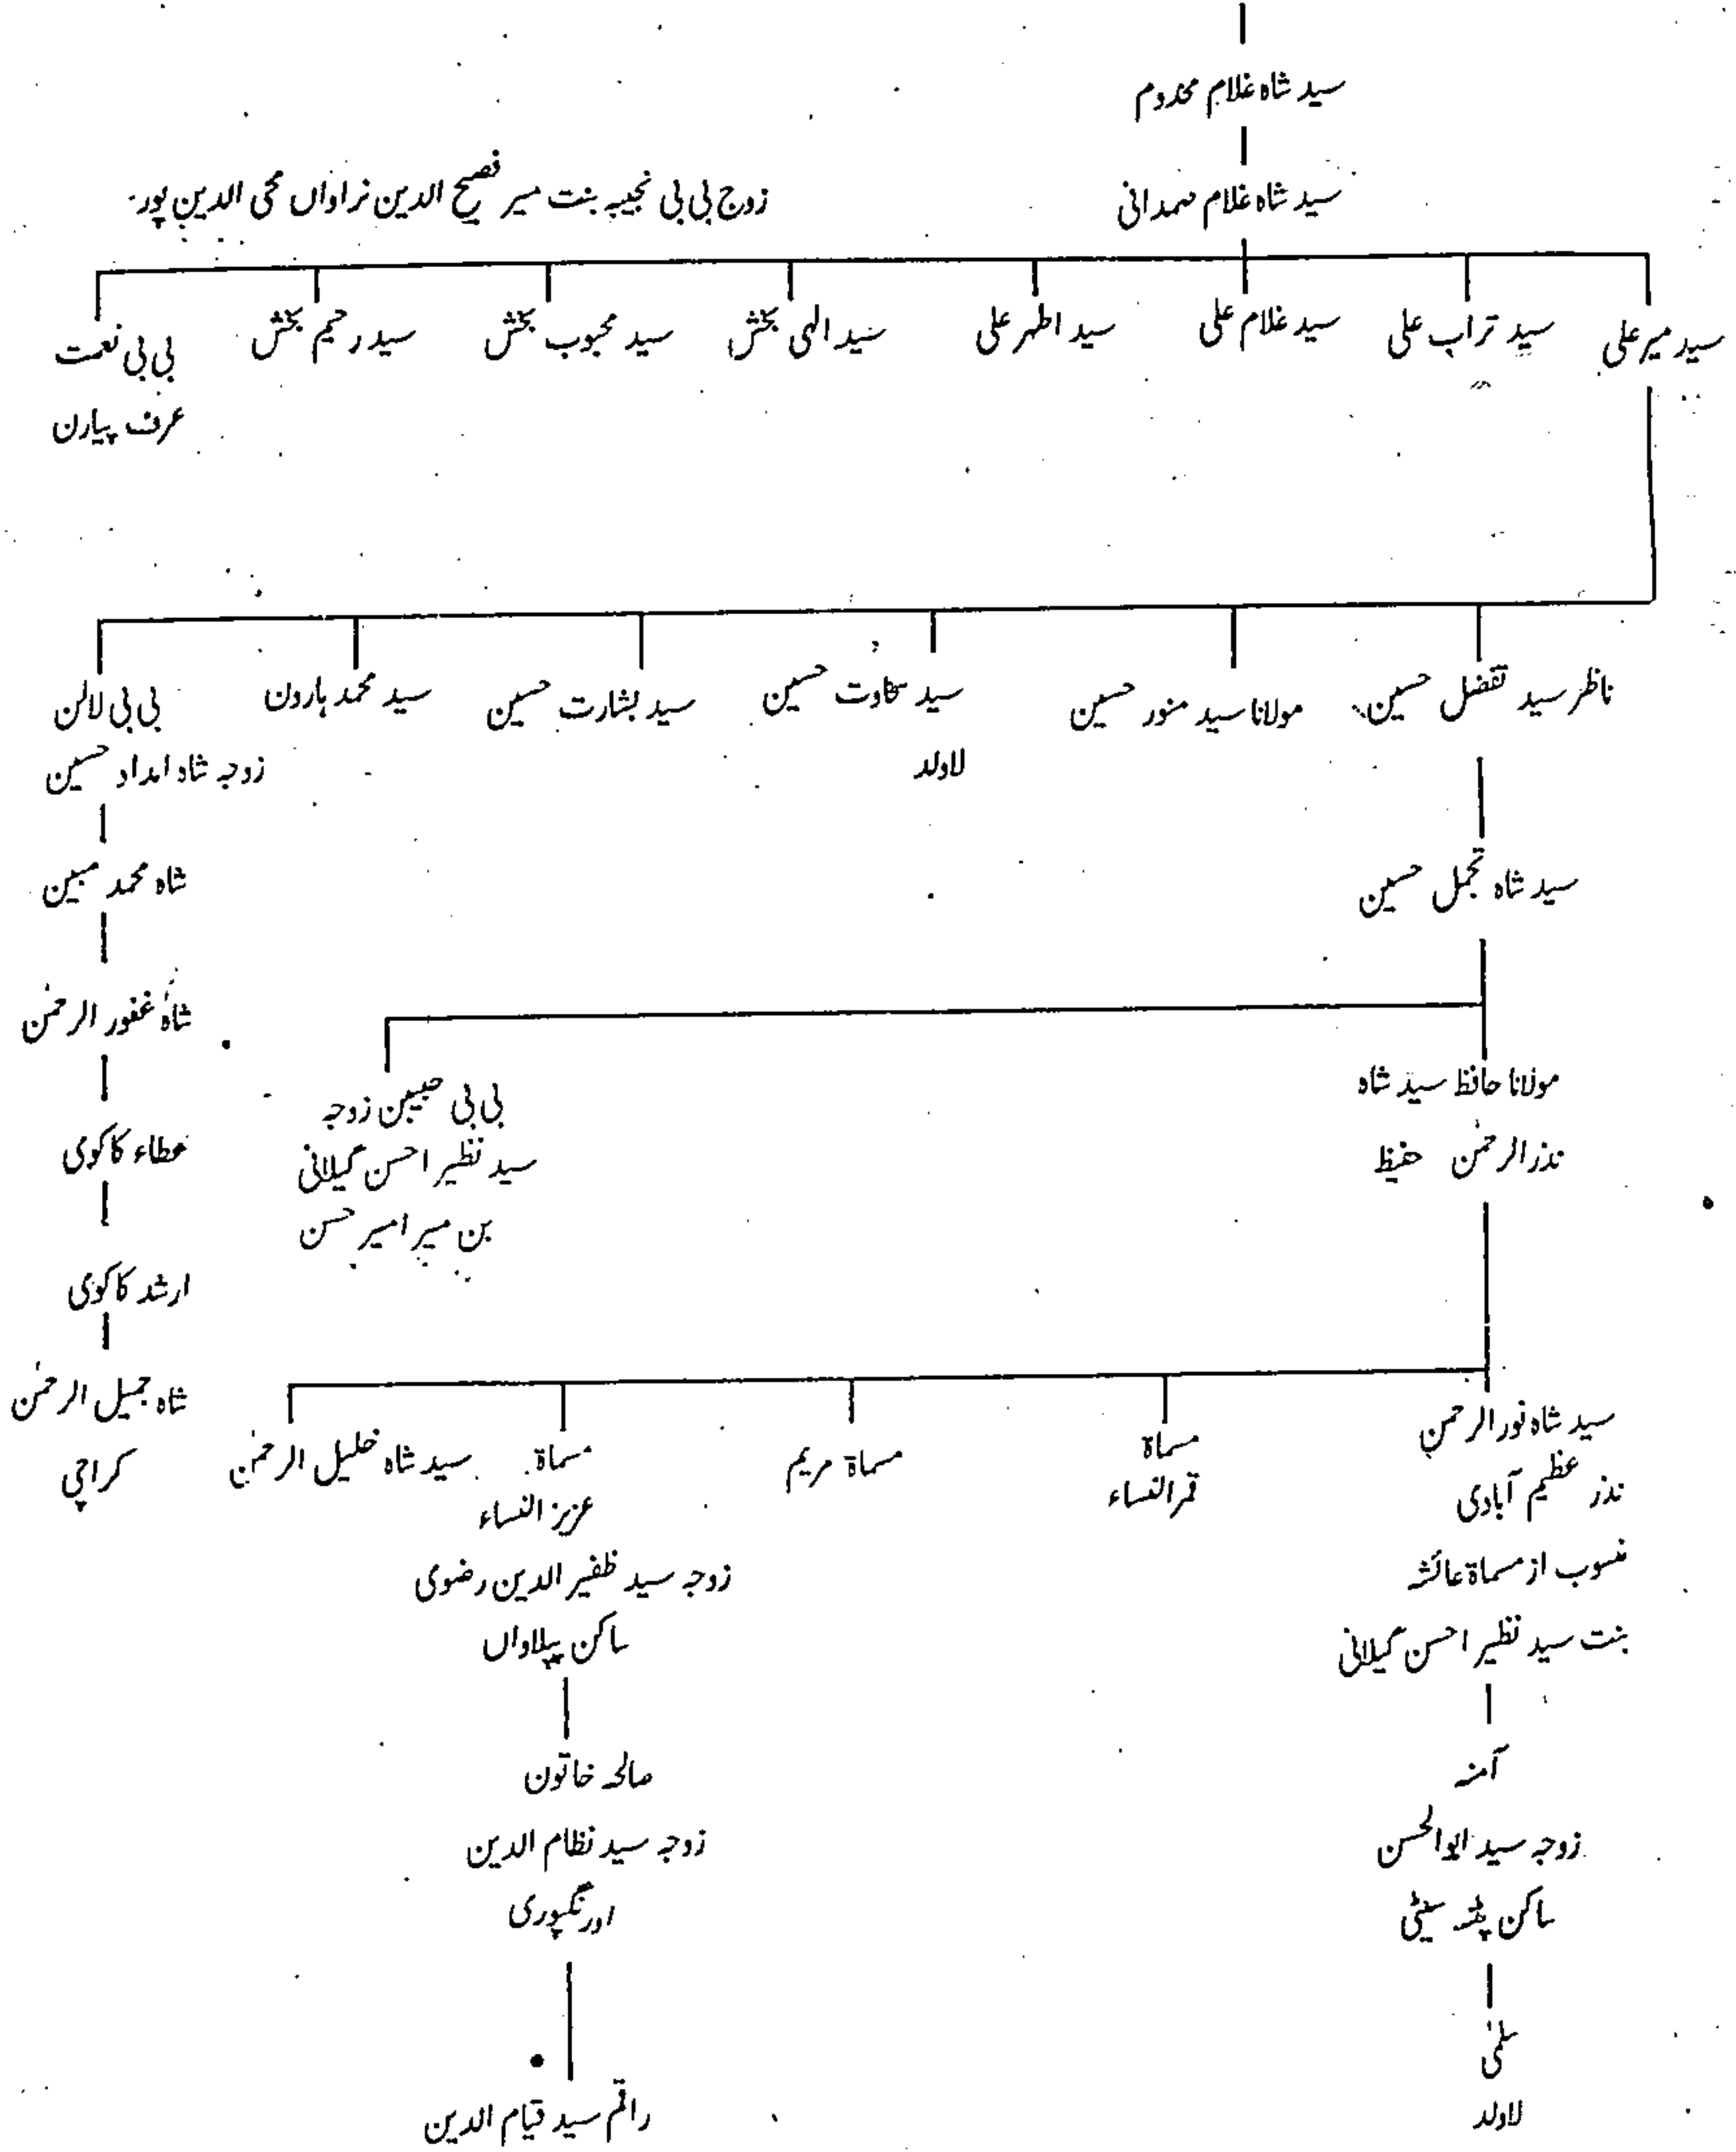 سید شاہ غلام مخدوم
سید شاہ غلام صمدانی
زوج بی بی نجیبہ بنت میر فصیح الدین نراواں محی الدین پور
سید میر علی
سید تراب علی
سید غلام علی
سید اطہر علی
سید الہی بخش
سید محبوب بخش
سید رحیم بخش
بی بی نعمت
عرف پیارن
ناظر سید تفضل حسین
مولانا سید منور حسین
سید سخاوت حسین
لاولد
سید بشارت حسین
سید محمد ہارون
بی بی لالن
زوجہ شاہ امداد حسین
شاہ محمد مبین
شاہ غفور الرحمٰن
عطاء کاکوی
ارشد کاکوی
شاہ جمیل الرحمٰن
کراچی
سید شاہ تجمل حسین
مولانا حافظ سید شاہ
نذر الرحمٰن حفیظ
بی بی حبیبن زوجہ
سید نظیر احسن گیلانی
بن میر امیر حسن
سید شاہ نور الرحمن
نذر عظیم آبادی
منسوب از مسماۃ عائشہ
بنت سید نظیر احسن گیلانی
آمنہ
زوجہ سید ابوالحسن
ساکن پٹنہ سیٹی
سلمٰی
لاولد
مسماۃ
قمر النساء
مسماۃ مریم
مسماۃ
عزیز النساء
زوجہ سید ظفیر الدین رضوی
ساکن پپلاواں
صالحہ خاتون
زوجہ سید نظام الدین
اورنگپوری
راقم سید قیام الدین
سید شاہ خلیل الرحمٰن